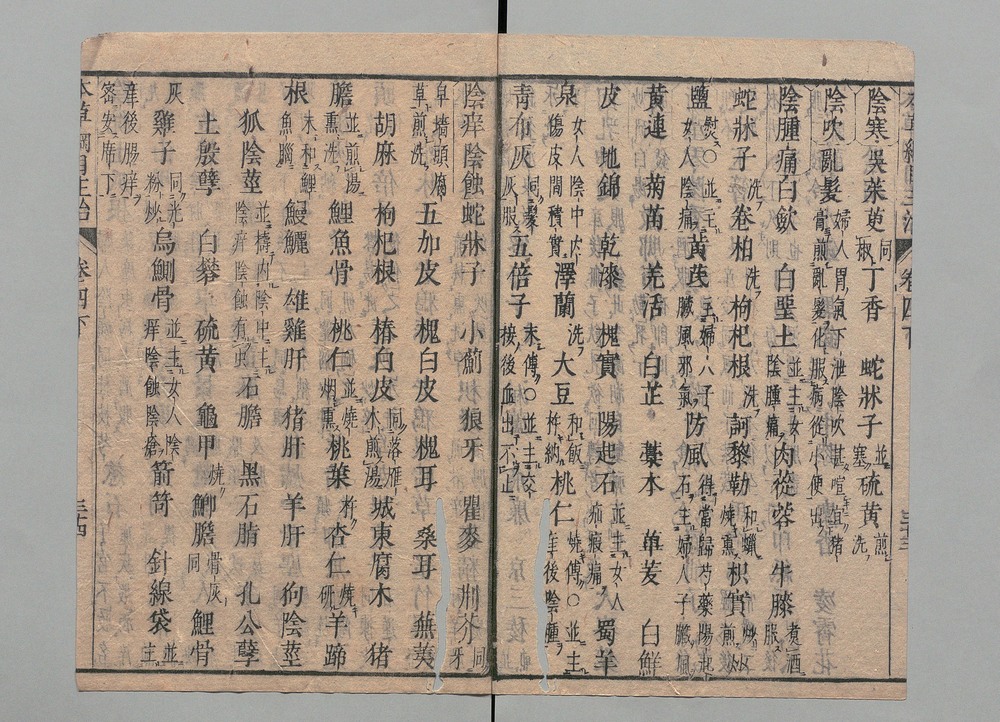 陰寒 吳茱萸 同椒 丁香 蛇牀子 並塞 硫黃 煎洗
陰吹 亂髮 婦人胃氣下泄陰吹甚喧宜猪膏煎亂髮化服病從小便出
陰腫痛 白斂 白堊土 並主女陰腫痛 肉蓯蓉 牛膝 煮酒服
蛇牀子 洗 卷柏 洗 枸杞根 洗 訶黎勒 和蠟燒熏 枳實 煎
鹽 熨○並主女人陰痛 黃芪 主婦人子臟風邪氣 防風 得當歸芍藥陽起石主婦人子臟風
黃連 菊苗 羌活 白芷 藁本 蓽茇 白鮮
皮 地錦 乾漆 槐實 陽起石 並主女人疝瘕痛 蜀羊
泉 女人陰中內傷皮間積實 澤蘭 洗 大豆 和飯杵納 桃仁 燒傅○並主產後陰腫
青布灰 同髮灰服 五倍子 末傅○並主交接後血出不止
陰痒陰蝕 蛇牀子 小薊 狼牙 瞿麥 荆芥 同牙
皁墻頭腐草煎洗 五加皮 槐白皮 槐耳 桑耳 蕪荑
胡麻 枸杞根 椿白皮 同落雁木煎湯 城東腐木 猪
膽 並煎湯熏洗 鯉魚骨 桃仁 並燒烟熏 桃葉 杵 杏仁 燒研 羊蹄
根 木和鯉魚腦 鰻鱺 雄雞肝 猪肝 羊肝 狗陰莖
狐陰莖 並擣內陰中主陰痒陰蝕有虫 石膽 黑石脂 孔公孽
土殷孽 白礬 硫黃 龜甲 燒 鯽膽 同骨灰 鯉骨
灰 雞子 同光粉炒 烏鰂骨 並主女人陰痒陰蝕陰瘡 箭笴 針線袋 並主
產後腸痒密安席下
本草綱目主治 卷四下 三十四